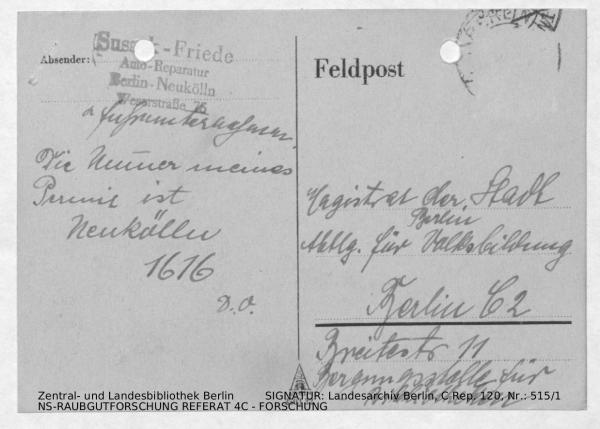 Absender:
Sussek-Friede
Auto-Reparatur
Berlin-Neukölln
Weserstraße 75
u Fuhrunternehmen.
Die Numer meines
Permit ist
Neukölln
1616
D.O.
Feldpost
Magistrat der Stadt
Berlin
Abtlg. für Volksbildung
Berlin C2
Breitestr 11
Bergungsstelle für
Zentral- und Landesbibliothek Berlin SIGNATUR: Landesarchiv Berlin, C Rep. 120, Nr.: 515/1
NS-RAUBGUTFORSCHUNG REFERAT 4C - FORSCHUNG